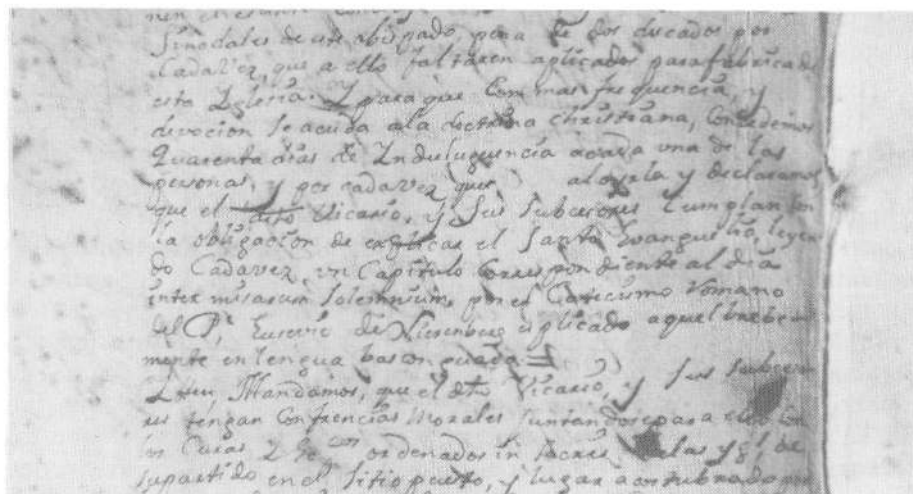 Sinodales de este abispado, pena de dos ducados por
Cadavez, que a ello faltaren aplicados para fabrica de
esta Iglesia. Y para que Con mas frequencia, y
devocion se acuda ala doctrina christiana, Concedemos
Quarenta dias de Indulugencia acada una de las
personas, y por cadavez que aloyrla y declaramos
que el dho Vicario, y sus subcesores Cumplan con
la obligacion de explicar el Santo Evangelio, leyen
do Cadavez, vn Capitulo Correspondiente al dia
inter misarum solemnium, por el Catecismo Romano
del P.e Eusevio de Nieremberg explicado aquel brebe
mente en lengua bascongada =
Itten Mandamos, que el dho Vicario, y sus subceso
res tengan Confrencias Morales Juntandose para ello con
los Curas ordenados in sacris de las Ygl.s de
supartido en el sitio puesto, y lugar acostumbrado